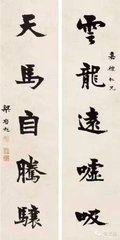 雲龍遠嘘吸
天馬自騰驤